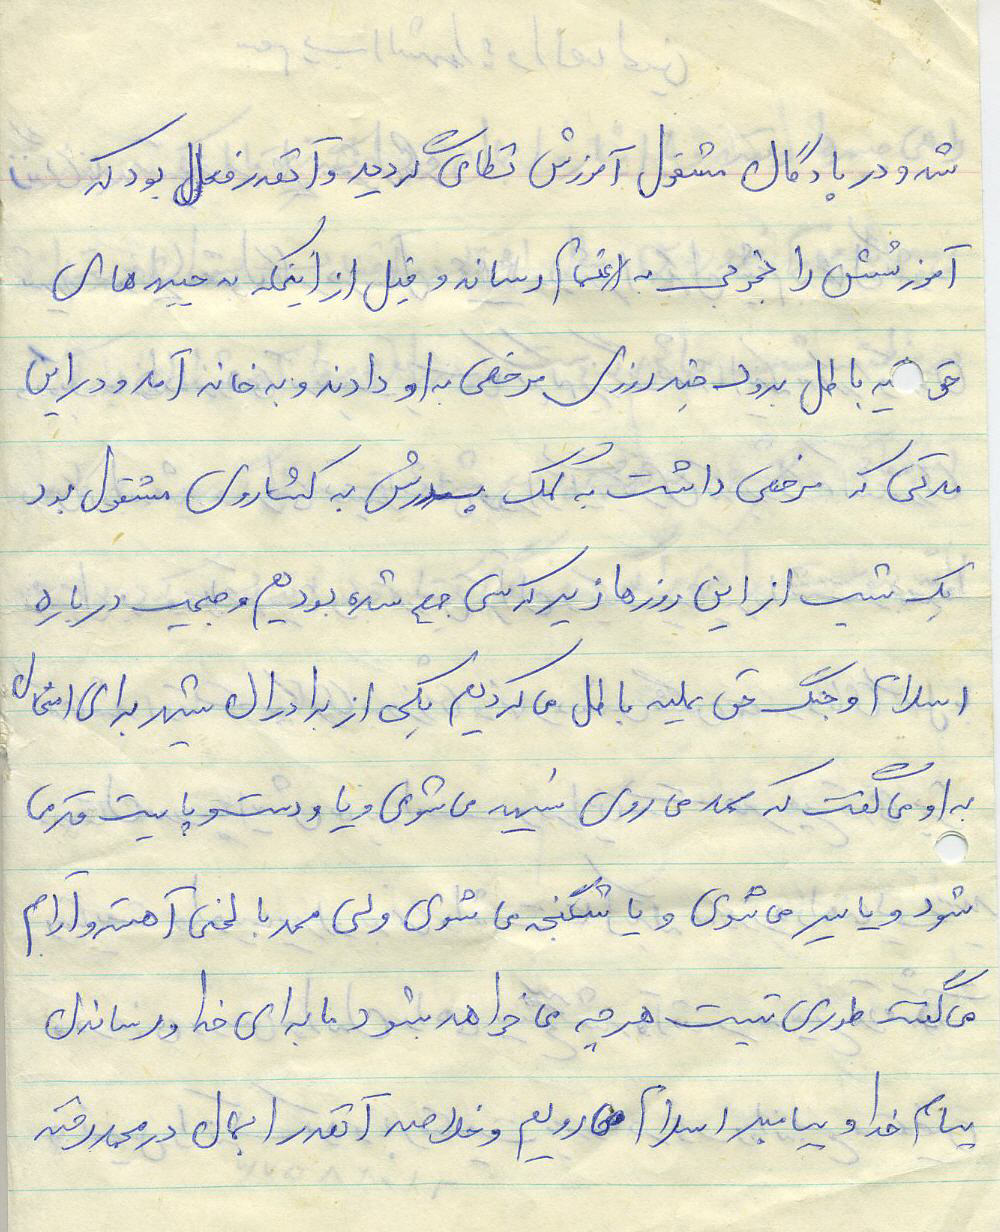 شد و در پادگان مشغول آموزش نظامی گردید و آنقدر فعال بود که
آموزشش را بخوبی به اختتام رساند و قبل از اینکه به جبهه های
حق علیه باطل برود چند روزی مرخصی به او دادند و به خانه آمد و در این
مدتی که مرخصی داشت به کمک پدرش به کشاروی مشغول بود
یک شب از این روزها زیر کرسی جمع شده بودیم و صحبت درباره
اسلام و جنگ حق علیه باطل می کردیم یکی از برادران شهید برای امتحان
به او می گفت که محمد می روی شهید می شوی و یا دست و پایت قطع می
شود و یا اسیر می شوی و یا شکنجه می شوی ولی محمد با لحنی آهسته و آرام
می گفت طوری نیست هر چه می خواهد بشود ما برای خدا و رساندن
پیام خدا و پیامبر اسلام می رویم و خلاصه آنقدر ایمان در محمد رفته